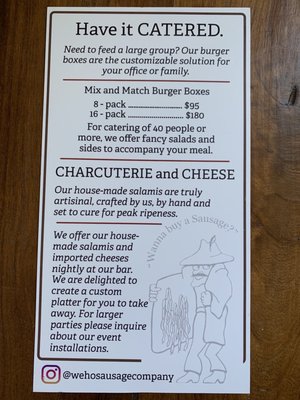 Have it CATERED.
Need to feed a large group? Our burger
boxes are the customizable solution for
your office or family.
Mix and Match Burger Boxes
8 - pack .............................. $95
16 - pack .............................. $180
For catering of 40 people or
more, we offer fancy salads and
sides to accompany your meal.
CHARCUTERIE and CHEESE
Our house-made salamis are truly
artisinal, crafted by us, by hand and
set to cure for peak ripeness.
"Wanna buy a Sausage?"
We offer our house-
made salamis and
imported cheeses
nightly at our bar.
We are delighted to
create a custom
platter for you to take
away. For larger
parties please inquire
about our event
installations.
@wehosausagecompany